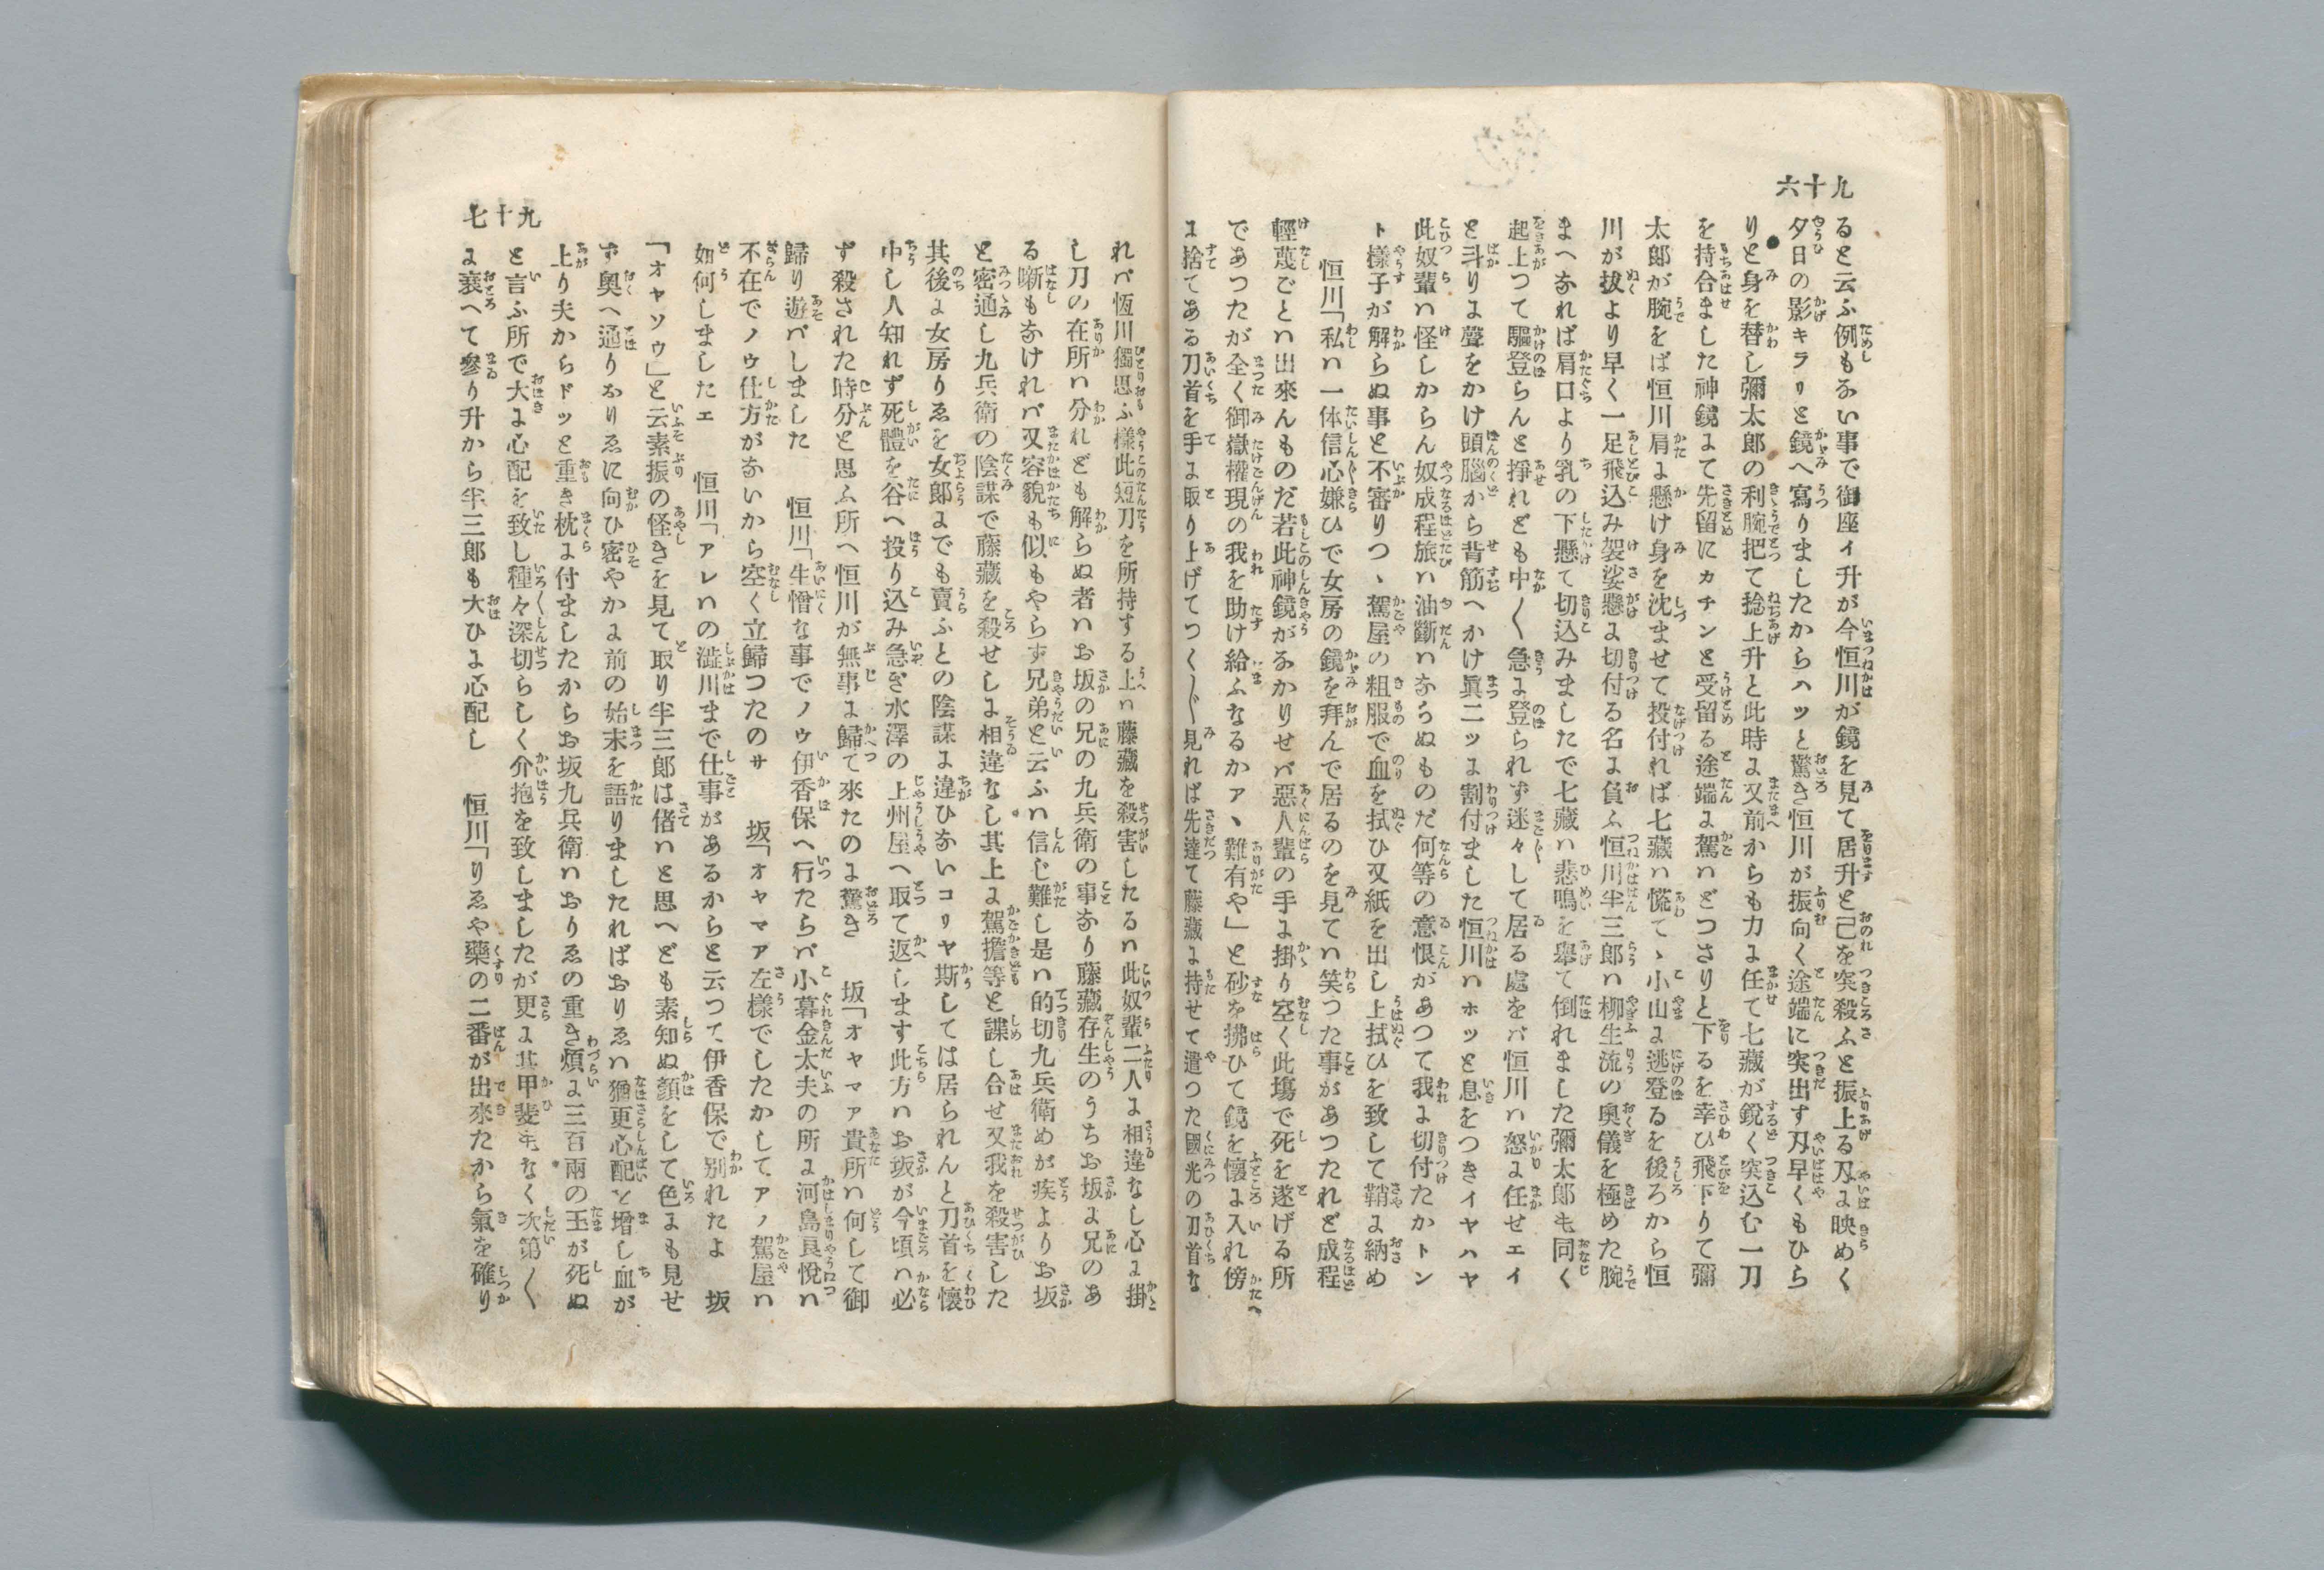 九十六
ると云ふ例もない事で御座イ升が今恒川が鏡を見て居升と己を突殺ふと振上る刄に映めく
夕日の影キラリと鏡へ寫りましたからハツと驚き恒川が振向く途端に突出す刄早くもひら
りと身を替し彌太郎の利腕把て捻上升と此時に又前からも力に任て七藏が鋭く突込む一刀
を持合ました神鏡にて先留にカチンと受留る途端に駕ハどつさりと下るを幸ひ飛下りて彌
太郎が腕をば恒川肩に懸け身を沈ませて投付れば七藏ハ慌てゝ小山に逃登るを後ろから恒
川が拔より早く一足飛込み袈裟懸に切付る名に負ふ恒川半三郎ハ柳生流の奧儀を極めた腕
まへなれば肩口より乳の下懸て切込みましたで七藏ハ悲鳴を舉て倒れました彌太郎も同く
起上つて驅登らんと掙れども中〱急に登られず迷々して居る處をバ恒川ハ怒に任せエイ
と斗りに聲をかけ頭腦から背筋へかけ眞二ツに割付ました恒川ハホッと息をつきイヤハヤ
此奴輩ハ怪しからん奴成程旅ハ油斷ハならぬものだ何等の意恨があつて我に切付たかトン
ト樣子が解らぬ事と不審りつゝ駕屋の粗服で血を拭ひ又紙を出し上拭ひを致して鞘に納め
恒川「私ハ一体信心嫌ひで女房の鏡を拜んで居るのを見てハ笑つた事があつたれど成程
輕蔑ごとハ出來んものだ若此神鏡がなかりせバ惡人輩の手に掛り空く此塲で死を遂げる所
であつたが全く御嶽權現の我を助け給ふなるかアヽ難有や」と砂を拂ひて鏡を懷に入れ傍
に捨てある刀首を手に取り上げてつく〲見れば先達て藤藏に持せて遣つた國光の刀首な
九十七
れバ恆川獨思ふ樣此短刀を所持する上ハ藤藏を殺害したるハ此奴輩二人に相違なし心に掛
し刀の在所ハ分れども解らぬ者ハお坂の兄の九兵衛の事なり藤藏存生のうちお坂に兄のあ
る噺もなけれバ又容貌も似もやらず兄弟と云ふハ信じ難し是ハ的切九兵衛めが疾よりお坂
と密通し九兵衛の陰謀で藤藏を殺せしに相違なし其上に駕擔等と諜し合せ又我を殺害した
其後に女房りゑを女郎までも賣ふとの陰謀に違ひないコリヤ斯しては居られんと刀首を懷
中し人知れず死體を谷へ投り込み急ぎ水澤の上州屋へ取て返します此方ハお坂が今頃ハ必
ず殺された時分と思ふ所へ恒川が無事に歸て來たのに驚き　坂「オヤマア貴所ハ何して御
歸り遊バしました　恒川「生憎な事でノウ伊香保へ行たらバ小暮金太夫の所に河島良悅ハ
不在でノウ仕方がないから空く立歸つたのサ　坂「オヤマア左樣でしたかしてアノ駕屋ハ
如何しましたエ　恒川「アレハの澁川まで仕事があるからと云つて伊香保で別れたよ　坂
「オヤソウ」と云素振の怪きを見て取り半三郎は偖ハと思へども素知ぬ顔をして色にも見せ
ず奧へ通りおりゑに向ひ密やかに前の始末を語りましたればおりゑハ猶更心配と増し血が
上り夫からドッと重き枕に付ましたからお坂九兵衛ハおりゑの重き煩に三百兩の玉が死ぬ
と言ふ所で大に心配を致し種々深切らしく介抱を致しましたが更に其甲斐もなく次第〱
に衰へて參り升から半三郎も大ひに心配し　恒川「りゑや藥の二番が出來たから氣を確り